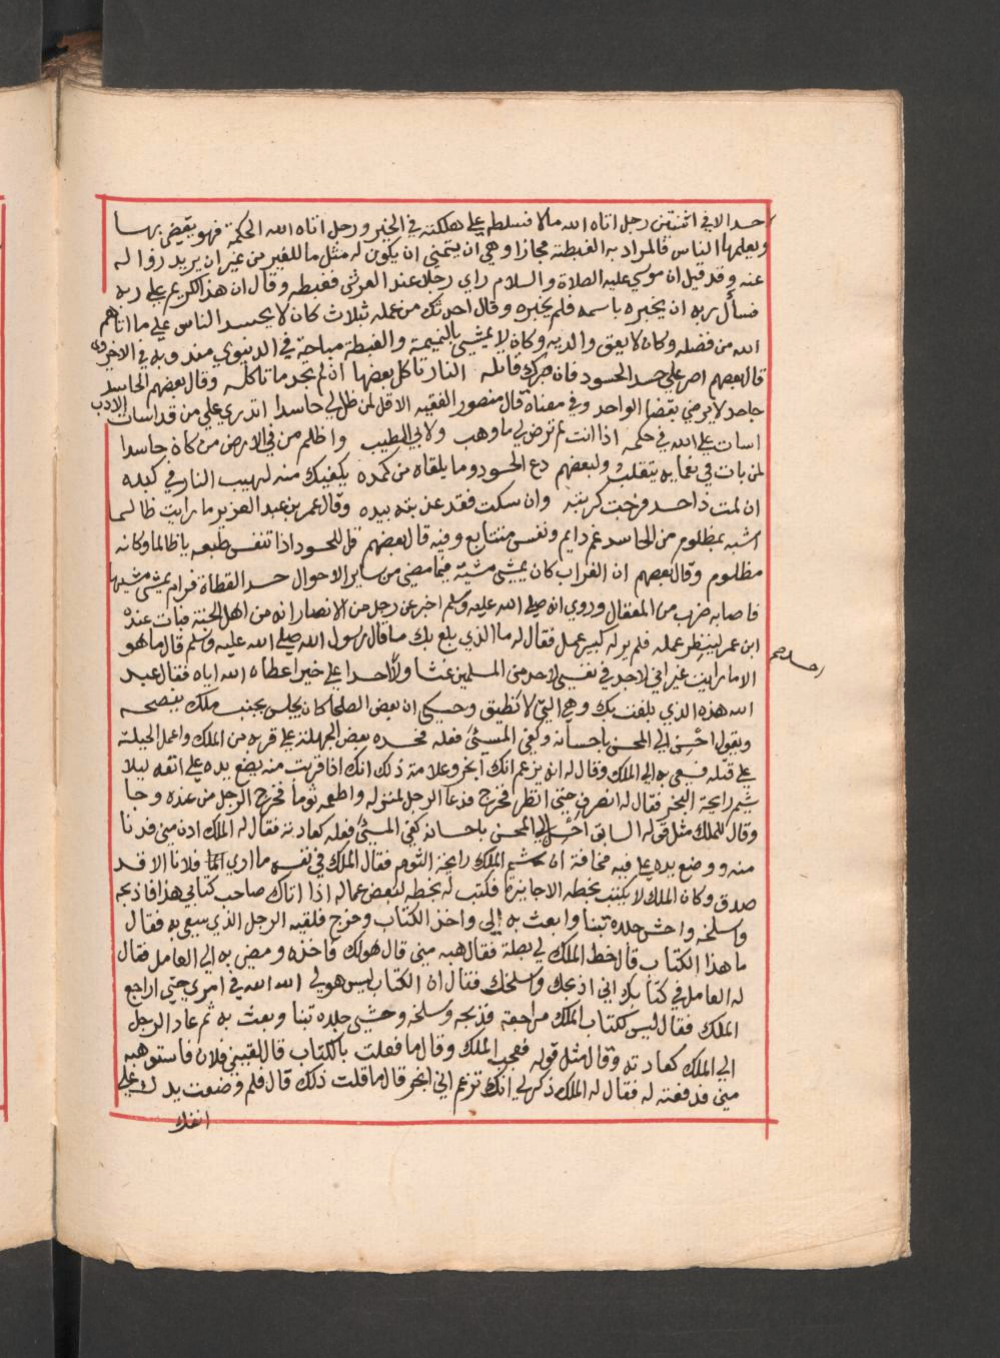 حسد الا في اثنتين رجل اتاه الله مالا فسلطه علي هلكته في الخير ورجل اتاه الله الحكمة فهو يقضي بها
ويعلمها الناس فالمراد به الغبطة مجازا وهي ان يتمني ان يكون له مثل ما للغير من غير ان يريد زواله
عنه وقد قيل ان موسي عليه الصلاة والسلام راي رجلا عند العرش فغبطه وقال ان هذا لكريم علي ربه
فسأل ربه ان يخبره باسمه فلم يخبره وقال احدثك من عمله بثلاث كان لا يحسد الناس علي ما اتاهم
الله من فضله وكان لا يعق والديه وكان لا يمشي بالنميمة والغبطة مباحة في الدنيوي مندوبة في الاخروي
قال بعضهم اصبر علي حسد الحسود فان صبرك قاتله النار تاكل بعضها ان لم تجد ما تاكله وقال بعضهم الحاسد
جاحد لا يرضي بقضا الواحد وفي معناه قال منصور الفقيه الا قل لمن ظل لي حاسدا اتدري علي من قد اسات الادب
اسات علي الله في حكمه اذا انت لم ترض لي ما وهب ولابي الطيب واظلم من في الارض من كان حاسدا
لمن بات في نعمايه يتقلب ولبعضهم دع الحسود وما يلقاه من كمده يكفيك منه لهيب النار في كبده
ان لمت ذا حسد فرجت كربته وان سكت فقد عذبته بيده وقال عمر بن عبد العزيز ما رايت ظالما
اشبه بمظلوم من الحاسد غم دايم ونفس متتابع وفيه قال بعضهم قل للحسود اذا تنفس طبعه يا ظالما وكانه
مظلوم وقال بعضهم ان الغراب كان يمشي مشية فيما مضي من ساير الاحوال حسد القطاة فرام يمشي مشيها
فاصابه ضرب من العقال وروي انه صلي الله عليه وسلم اخبر عن رجل من الانصار انه من اهل الجنة فبات عنده
ابن عمر لينظر عمله فلم ير له كبير عمل فقال له ما الذي بلغ بك ما قال رسول الله صلي الله عليه وسلم قال ما هو
الا ما رايت غير اني لا اجد في نفسي لاحد من المسلمين غشا ولا احسد احدا علي خير اعطاه الله اياه فقال عبد
الله هذه الذي بلغت بك وهي التي لا نطيق وحكي ان بعض الصلحا كان يجلس بجنب ملك ينصحه
ويقول احسن الي المحسن باحسانه وكفي المسئ فعله فحسده بعض الجهلة علي قربه من الملك واعمل الحيلة
علي قتله فسعي به الي الملك وقال له انه يزعم انك ابخر وعلامة ذلك انك اذا قربت منه يضع يده علي انفه ليلا
يشم رايحة البخر فقال له انصرف حتي انظر فخرج فدعا الرجل لمنزله واطعمه ثوما فخرج الرجل من عنده وجا
وقال للملك مثل قوله السابق احسن الي المحسن باحسانه كفي المسئ فعله كعادته فقال له الملك ادن مني فدنا
منه ووضع يده علي فيه مخافة ان يشم الملك رايحة الثوم فقال الملك في نفسه ما اري فلانا الا قد
صدق وكان الملك لا يكتب بخطه الا جايزة فكتب له بخطه لبعض عماله اذا اتاك صاحب كتابي هذا فاذبحه
واسلخه واحش جلده تبنا وابعث به الي واخذ الكتاب وخرج فلقيه الرجل الذي سعي به فقال
ما هذا الكتاب قال خط الملك لي بصلة فقال هبه مني قال هو لك فاخذه ومضي به الي العامل فقال
له العامل في كتابك اني اذبحك واسلخك فقال ان الكتاب ليس هو لي الله الله في امري حتي اراجع
الملك فقال ليس لكتاب الملك مراجعة فذبحه وسلخه وحشي جلده تبنا وبعث به ثم عاد الرجل
الي الملك كعادته وقال مثل قوله فعجب الملك وقال ما فعلت بالكتاب قال لقيني فلان فاستوهبه
مني فدفعته له فقال له الملك ذكر لي انك تزعم اني ابخر قال ما قلت ذلك قال فلم وضعت يدك علي
انفك